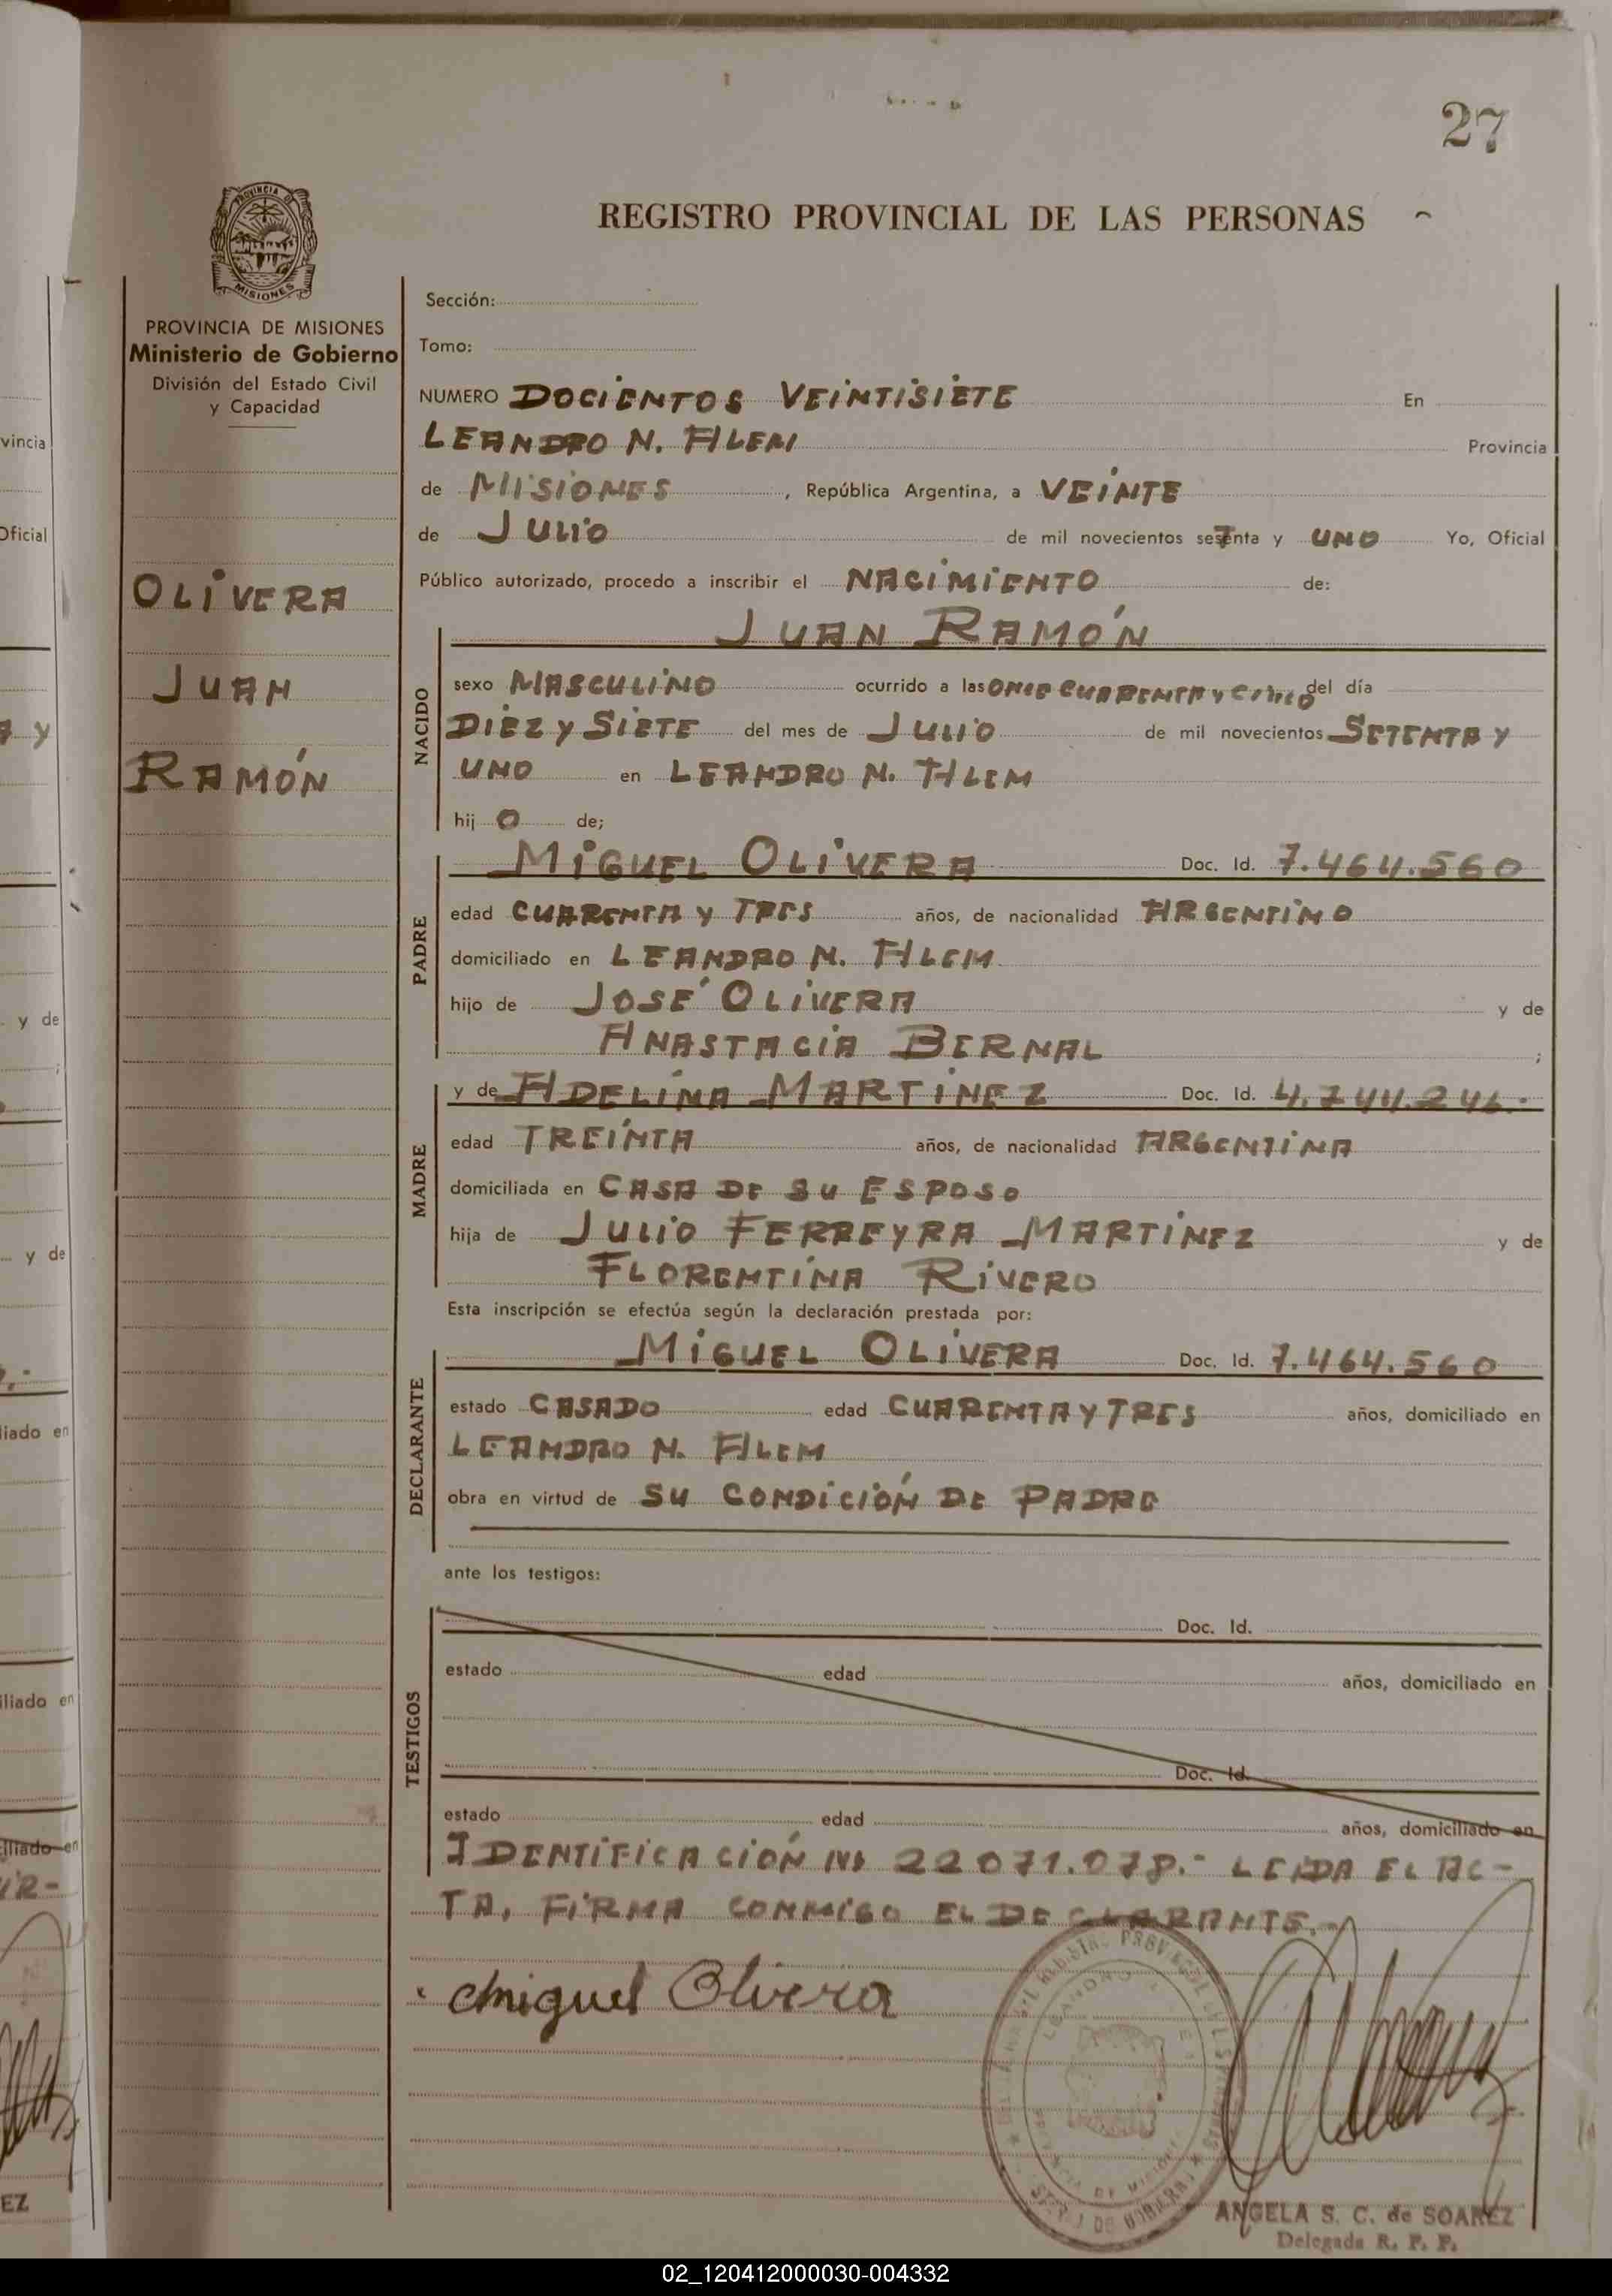 27
PROVINCIA
MISIONES
REGISTRO PROVINCIAL DE LAS PERSONAS
PROVINCIA DE MISIONES
Ministerio de Gobierno
División del Estado Civil
y Capacidad
OLIVERA
JUAN
RAMÓN
Sección:
Tomo:
NUMERO DOCIENTOS VEINTISIETE En
LEANDRO N. ALEM Provincia
de MISIONES, República Argentina, a VEINTE
de JULIO de mil novecientos setenta y UNO Yo, Oficial
Público autorizado, procedo a inscribir el NACIMIENTO de:
JUAN RAMÓN
NACIDO
sexo MASCULINO ocurrido a las ONCE CUARENTA Y CINCO del día
DIEZ Y SIETE del mes de JULIO de mil novecientos SETENTA Y
UNO en LEANDRO N. ALEM
hij O de;
PADRE
MIGUEL OLIVERA Doc. Id. 7.464.560
edad CUARENTA Y TRES años, de nacionalidad ARGENTINO
domiciliado en LEANDRO N. ALEM
hijo de JOSÉ OLIVERA y de
ANASTACIA BERNAL ;
MADRE
y de ADELINA MARTINEZ Doc. Id. 4.744.246.-
edad TREINTA años, de nacionalidad ARGENTINA
domiciliada en CASA DE SU ESPOSO
hija de JULIO FERREYRA MARTINEZ y de
FLORENTINA RIVERO
Esta inscripción se efectúa según la declaración prestada por:
DECLARANTE
MIGUEL OLIVERA Doc. Id. 7.464.560
estado CASADO edad CUARENTA Y TRES años, domiciliado en
LEANDRO N. ALEM
obra en virtud de SU CONDICIÓN DE PADRE
ante los testigos:
TESTIGOS
Doc. Id.
estado edad años, domiciliado en
Doc. Id.
estado edad años, domiciliado en
IDENTIFICACIÓN Nº 22071.078.- LEIDA EL AC-
TA, FIRMA CONMIGO EL DECLARANTE.-
Miguel Olivera
ANGELA S. C. de SOAREZ
Delegada R. P. P.
02_120412000030-004332